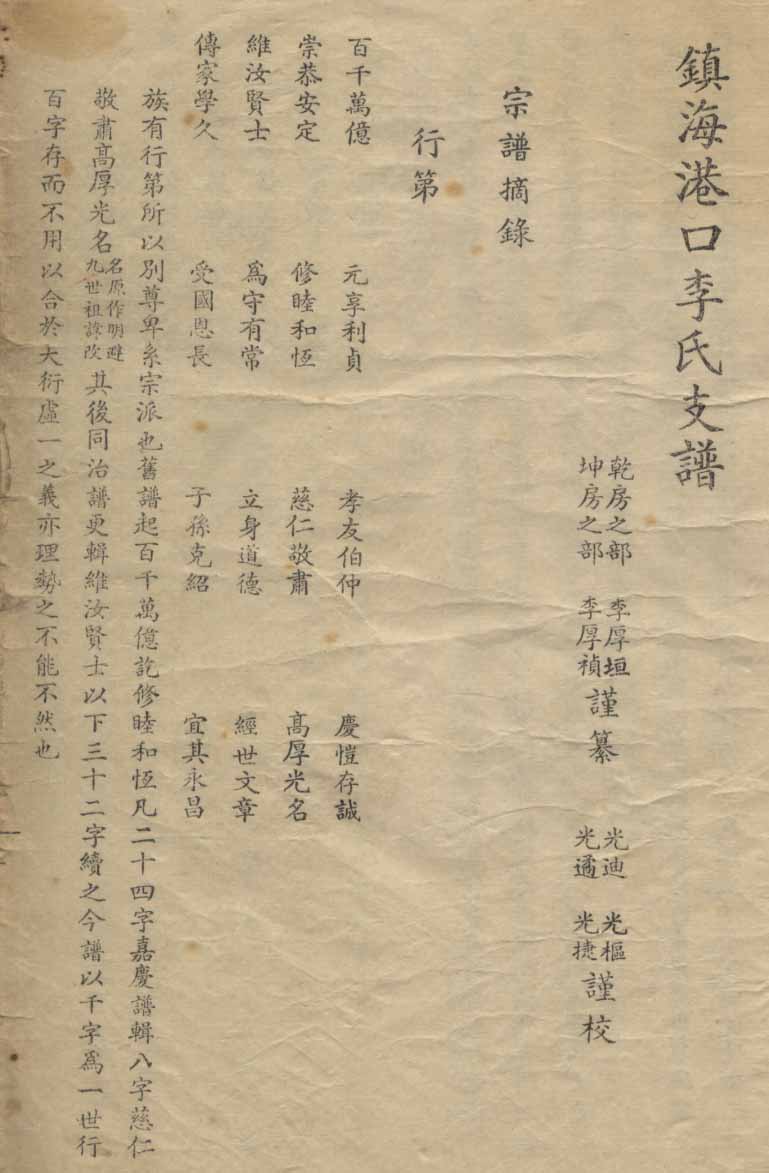 鎮海港口李氏支譜
乾房之部 李厚垣
坤房之部 李厚禎
謹纂
光迪 光樞
光遹 光捷
謹校
宗譜摘錄
行第
百千萬億 元享利貞 孝友伯仲 慶愷存誠
崇恭安定 修睦和恆 慈仁敬肅 高厚光名
維汝賢士 爲守有常 立身道德 經世文章
傳家學久 受國恩長 子孫克紹 宜其永昌
族有行第所以別尊卑系宗派也舊譜起百千萬億訖修睦和恆凡二十四字嘉慶譜輯八字慈仁
敬肅高厚光名名原作明避九世祖諱改其後同治譜更輯維汝賢士以下三十二字續之今譜以千字爲一世行
百字存而不用以合於大衍虛一之義亦理勢之不能不然也